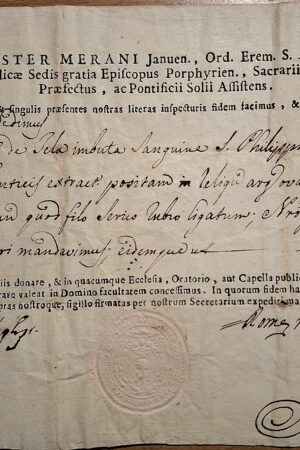 STER MERANI Januen., Ord. Erem. S.
licæ Sedis gratia Episcopus Porphyrien., Sacrarii
Præfectus, ac Pontificii Solii Assistens.
singulis præsentes nostras literas inspecturis fidem facimus, &
dedimus
de Tela imbuta Sanguine S. Philippi
enticis extract positam in reliqu arg ova
quod filo Serico rubro ligatum; Nos
ri mandavimus; eidemque ut
iis donare, & in quacumque Ecclesia, Oratorio, aut Capella public
are valeat in Domino facultatem concessimus. In quorum fidem ha
pras nostroque, sigillo firmatas per nostrum Secretarium expediri ma
Romæ